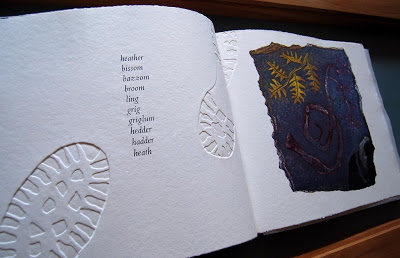 heather
bissom
bazzom
broom
ling
grig
griglum
hedder
hadder
heath